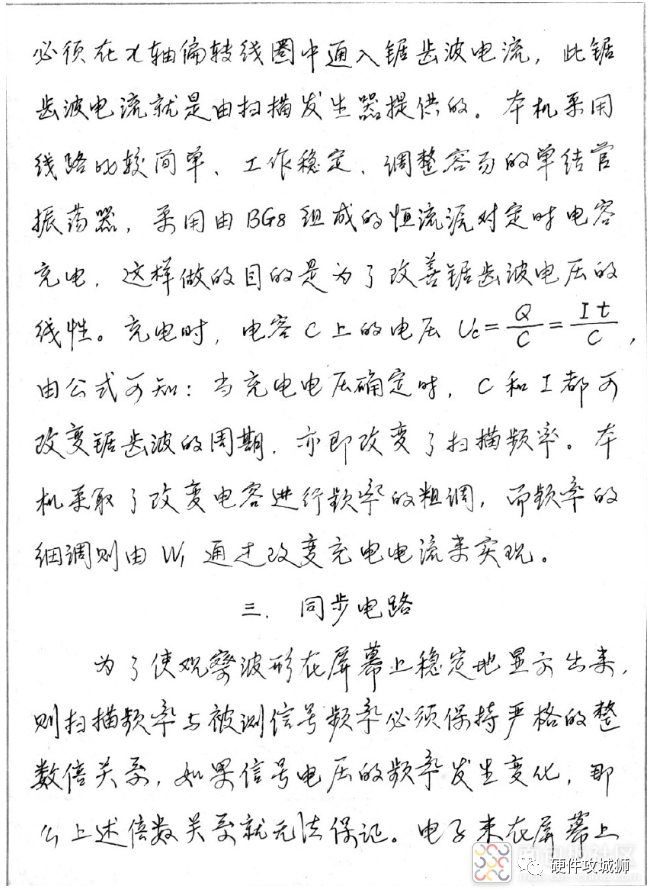 必须在X轴偏转线圈中通入锯齿波电流，此锯
齿波电流就是由扫描发生器提供的。本机采用
线路比较简单、工作稳定、调整容易的单结管
振荡器，采用由BG8组成的恒流源对定时电容
充电，这样做的目的是为了改善锯齿波电压的
线性。充电时，电容C上的电压 Uc=Q/C=It/C，
由公式可知：当充电电压确定时，C和I都可
改变锯齿波的周期，亦即改变了扫描频率。本
机采取了改变电容进行频率的粗调，而频率的
细调则由W1通过改变充电电流来实现。
三．同步电路
为了使观察波形在屏幕上稳定地显示出来，
则扫描频率与被测信号频率必须保持严格的整
数倍关系，如果信号电压的频率发生变化，那
么上述倍数关系就无法保证。电子束在屏幕上
硬件攻城狮